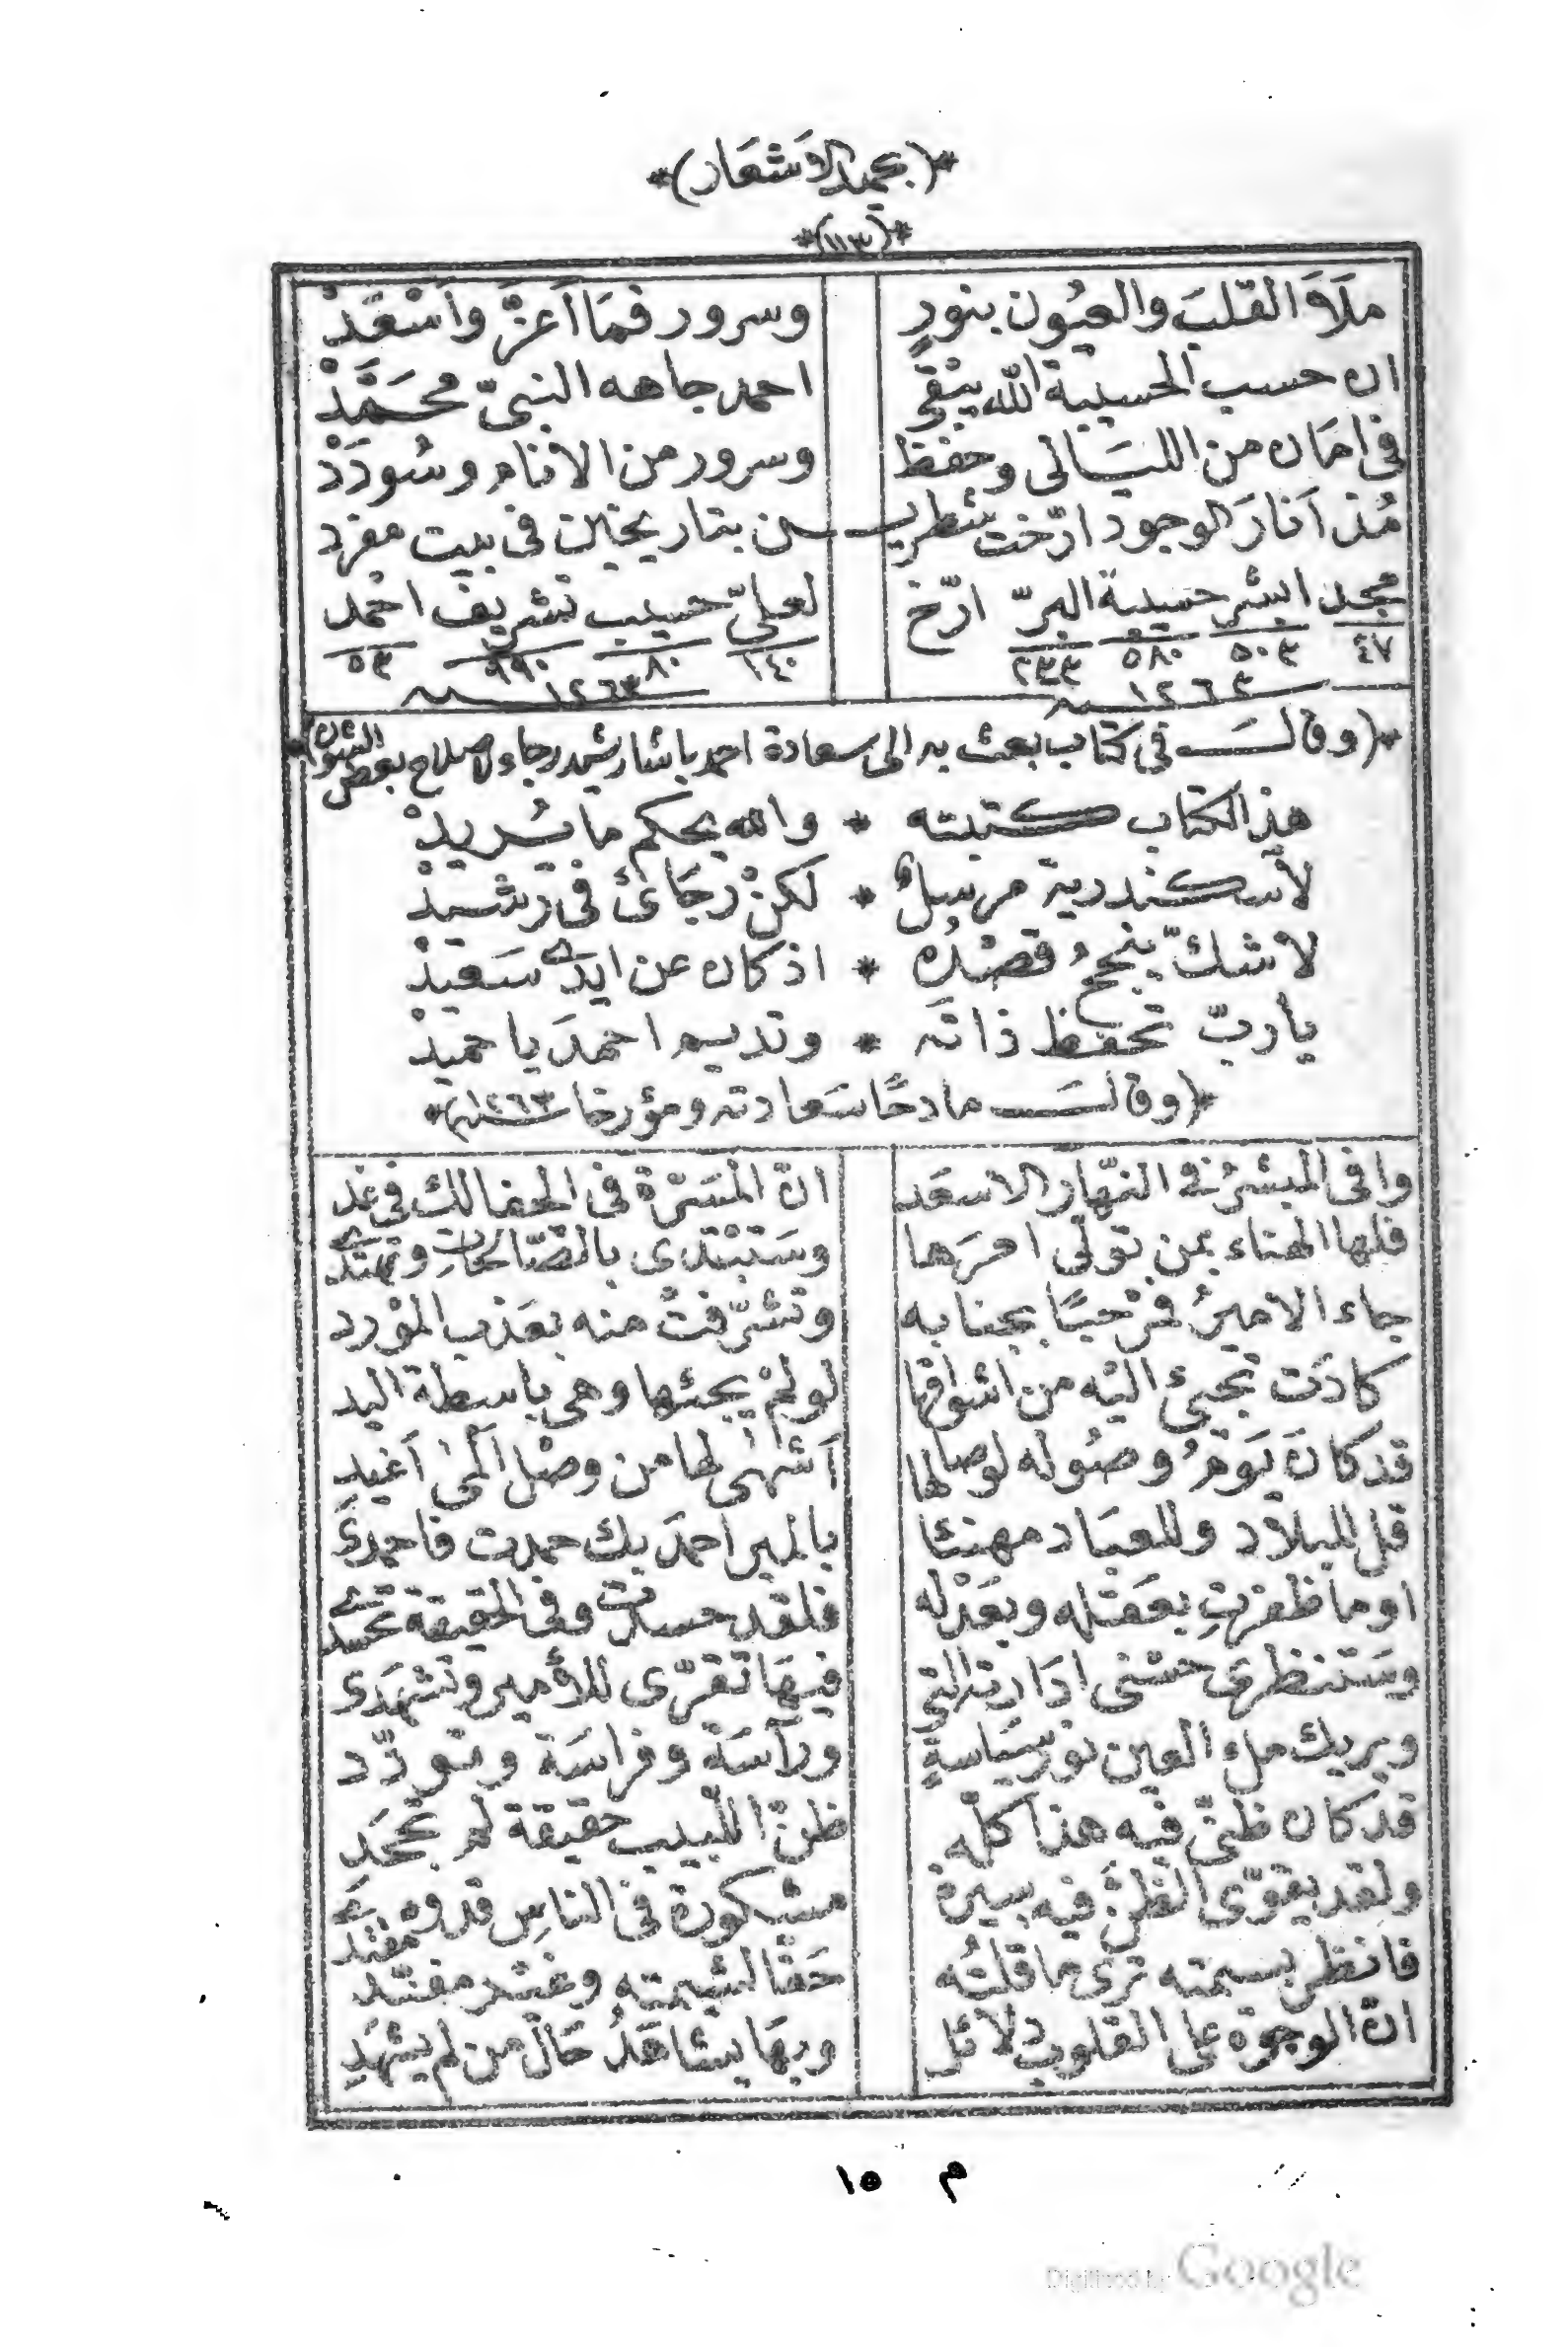 *(بحميد الاشعار)*
*(١١٣)*
ملَأَ القلبَ والعيُون بنورٍ وسرور فمَا اَعزَّ واَسْعَدْ
ان حسب الحسيبة الله يبقى احمد جاهه النبىّ محَمَّدْ
فى امان من الليَالى وحفظ وسرور من الانام وسُودَدْ
مُذ اَنارَ الوجود ارّخت شطريـن بتاريخين فى بيت مفرد
مجد ابشر حسيبة البرّ ارّخ لعلىّ حسيب تشريف احمد
٤٧ ٥٠٣ ٥٨٠ ٢٣٣ ١٤٠ ٨٠ ٩٩٠ ٥٣
١٢٦٣ ١٢٦٣
*(وقالـــ فى كتاب بعث به الى سعادة احمد باشا رشيد رجاء لاصلاح بعض الشؤن)*
هذا الكتاب كتبته * والله يحكم ما يُريدْ
لاسكندرية مرسلٌ * لكنْ رَجَائى فى رَشيدْ
لا شكّ ينجحُ قصْدُه * اذ كان عن ايدى سَعيدْ
يا ربّ تحفظ ذاتَه * وتديم احمدَ يا حميدْ
*(وقالـــ مادحًا سَعادته ومؤرخا سنة ١٢٦٣)*
وافى المبشرُ فى النهّار الاسعَد انّ المسَرّة فى الحمالك فى غد
فلها الهناء بمن تولّى امرَها وسَتبْتدى بالصّالحاتِ وتهتدى
جاء الاميرُ فمرْحبًا بجنابه وتشرّفتْ منه بعَذب الموْرد
كادَت تجيئ اليْه من اشواقها لو لمْ يجئها وهى باسطة اليد
قد كانَ يَومُ وصُوله لوصالها اَشهٰى لها من وصْل اَلمىٰ اَغيدِ
قل للبلاد وللعبَاد مهنئا بالمير احمدَ بك حمدت فاحمدى
اوما ظفرتِ بعَقله وبعَدْله فلقد حسدت وفى الحقيقة تحسدى
وستنظرى حسْنى ادَارته التى فيهَا تقرّى للأمير وتشهَدى
ويريك ملء العين نورَ سيَاسةٍ ورآسَة وفراسَة وتودّد
قد كان ظنىّ فيْه هذا كلّه ظنّ اللّبيب حقيقة لم تجحَد
ولقد يقوّى الظنّ فيه سيرة مشكورة فى الناسِ قدوه مقتدى
فانظر بسيمته ترى ما قلتُه حَقّا لشيمته وفند مفنّد
انّ الوجوْه على القلوب دلائل وبهَا يشاهَدُ حَال من لم يشهَدِ
م ١٥
Digitized by Google